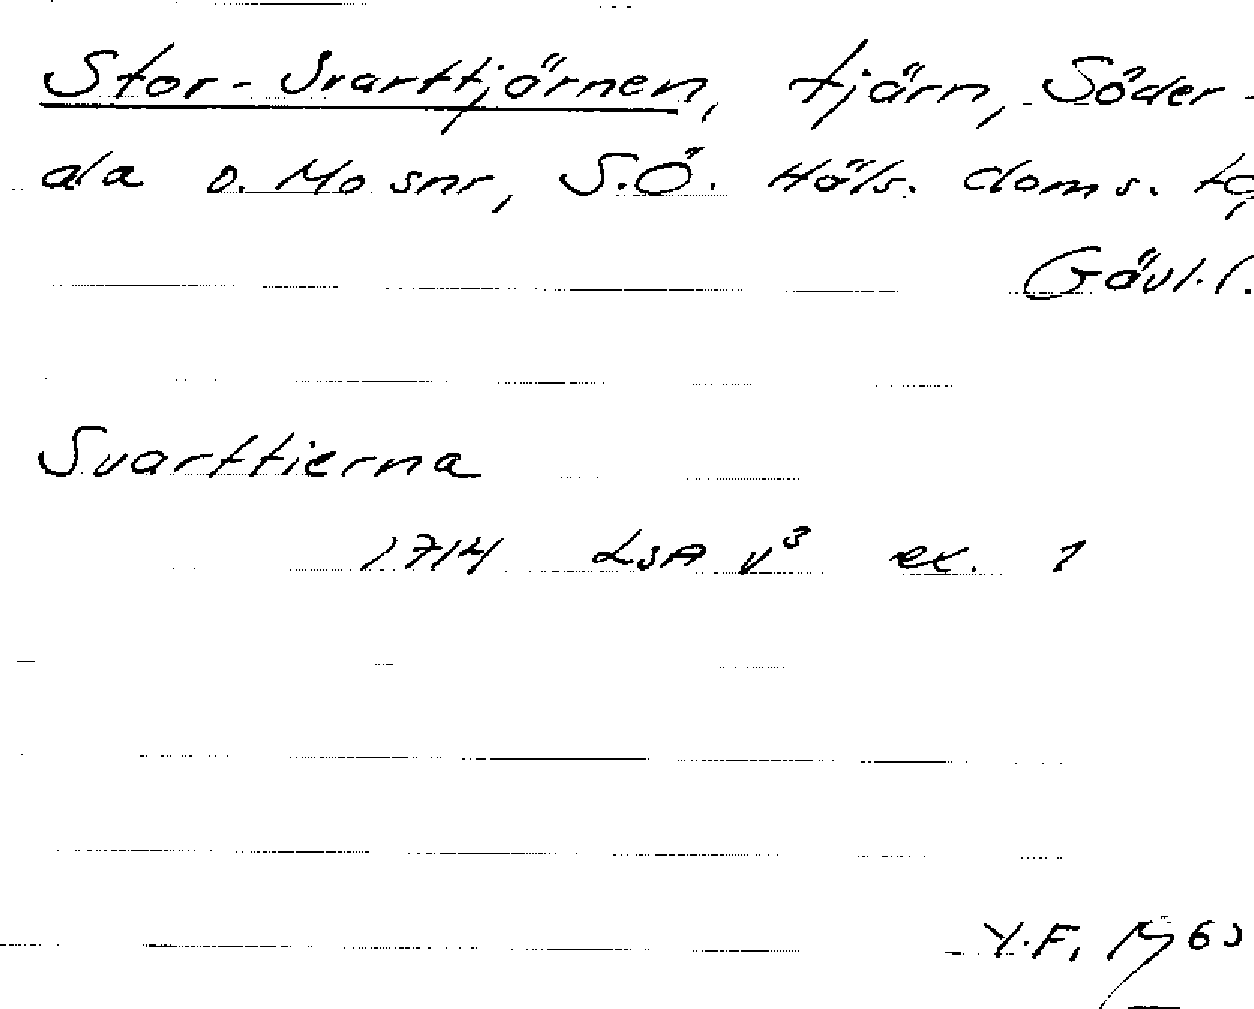 Stor-Svarttjärnen, tjärn, Söder-
ala o. Mo snr, S.Ö. Häls. doms. tg,
Gävl. l.
Svarttierna
1714 LSA V³ ex. 1
Y.F. 1963